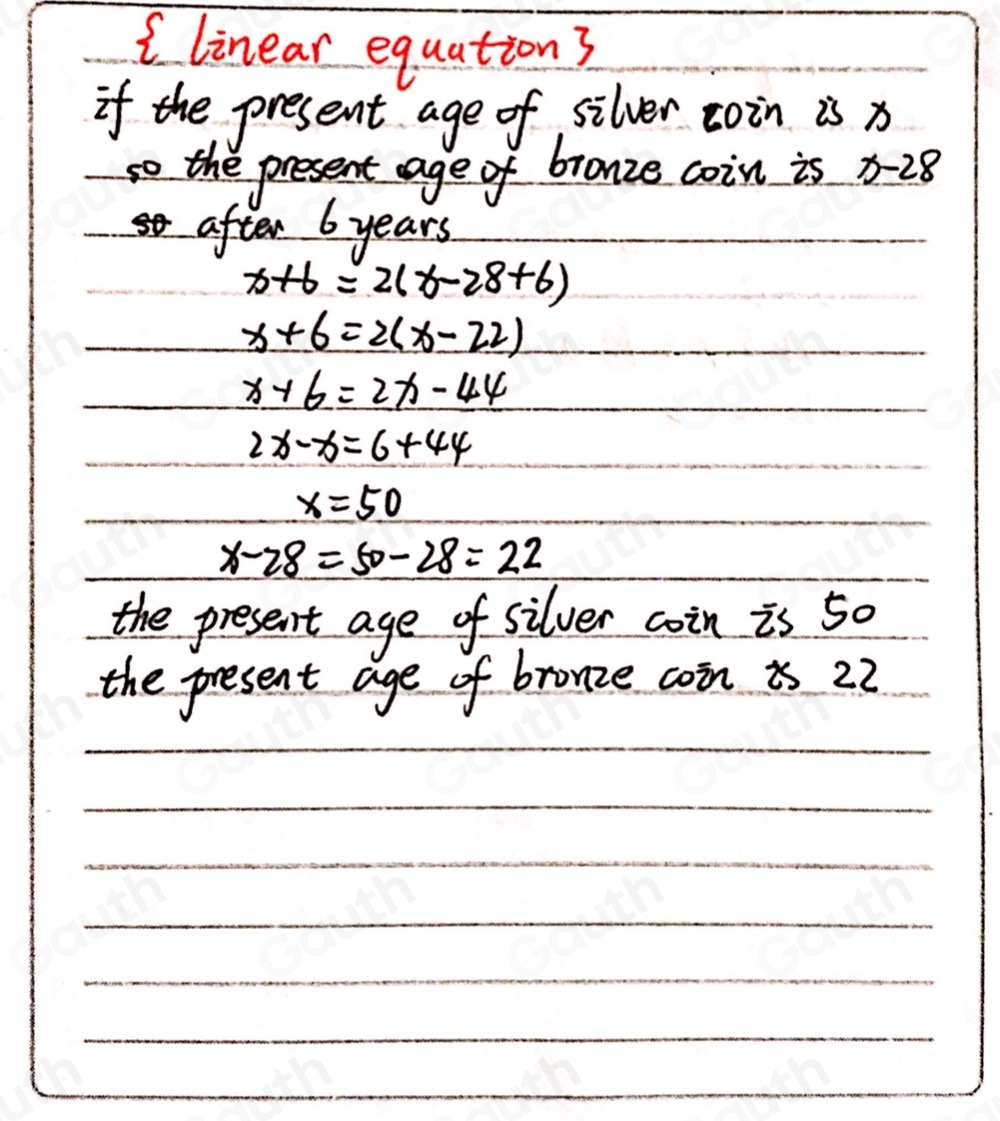 { linear equation }
if the present age of silver coin is x
so the present age of bronze coin is x-28
so after 6 years
x+6 = 2(x-28+6)
x+6=2(x-22)
x+6=2x-44
2x-x=6+44
x=50
x-28=50-28=22
the present age of silver coin is 50
the present age of bronze coin is 22
Gauth